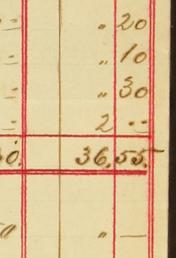 " 20
" 10
" 30
2 --
36.55.
" —